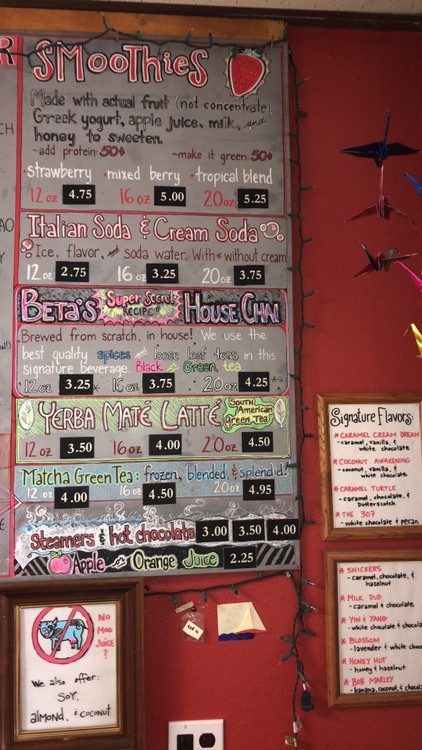 SMOOTHIES
Made with actual fruit (not concentrate),
Greek yogurt, apple juice, milk, and
honey to sweeten.
-add protein 50¢ -make it green 50¢
·strawberry ·mixed berry ·tropical blend
12 oz 4.75 16 oz 5.00 20 oz 5.25
Italian Soda & Cream Soda
Ice, flavor, and soda water. With or without cream
12 oz 2.75 16 oz 3.25 20 oz 3.75
BETA'S Super Secret RECIPE! HOUSE CHAI
Brewed from scratch, in house! We use the
best quality spices and loose leaf teas in this
signature beverage. Black or Green tea
12 oz 3.25 16 oz 3.75 20 oz 4.25
YERBA MATÉ LATTÉ South American green tea
12 oz 3.50 16 oz 4.00 20 oz 4.50
Matcha Green Tea: frozen, blended, & splendid!
12 oz 4.00 16 oz 4.50 20 oz 4.95
Steamers & hot chocolate 3.00 3.50 4.00
Apple Orange Juice 2.25
Signature Flavors:
* CARAMEL CREAM DREAM
- caramel, vanilla, &
white chocolate
* COCONUT AWAKENING
- coconut, vanilla, &
white chocolate
* CARAMEL TURTLE
- caramel, chocolate, &
butterscotch
* THE 307
- white chocolate & pecan
* SNICKERS
- caramel, chocolate, &
hazelnut
* MILK DUD
- caramel & chocolate
* YIN & YANG
- white chocolate & chocola
* BLOSSOM
- lavender & white choco
* HONEY HUT
- honey & hazelnut
* BOB MARLEY
- banana, coconut, & choco
NO
MOO
JUICE
?
We also offer:
SOY,
almond, & coconut